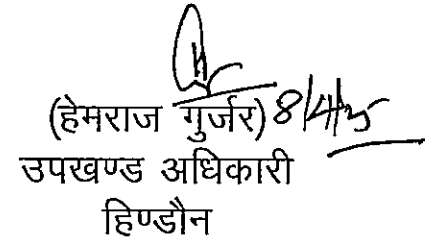 (हेमराज गुर्जर) 8/4/25
उपखण्ड अधिकारी
हिण्डौन